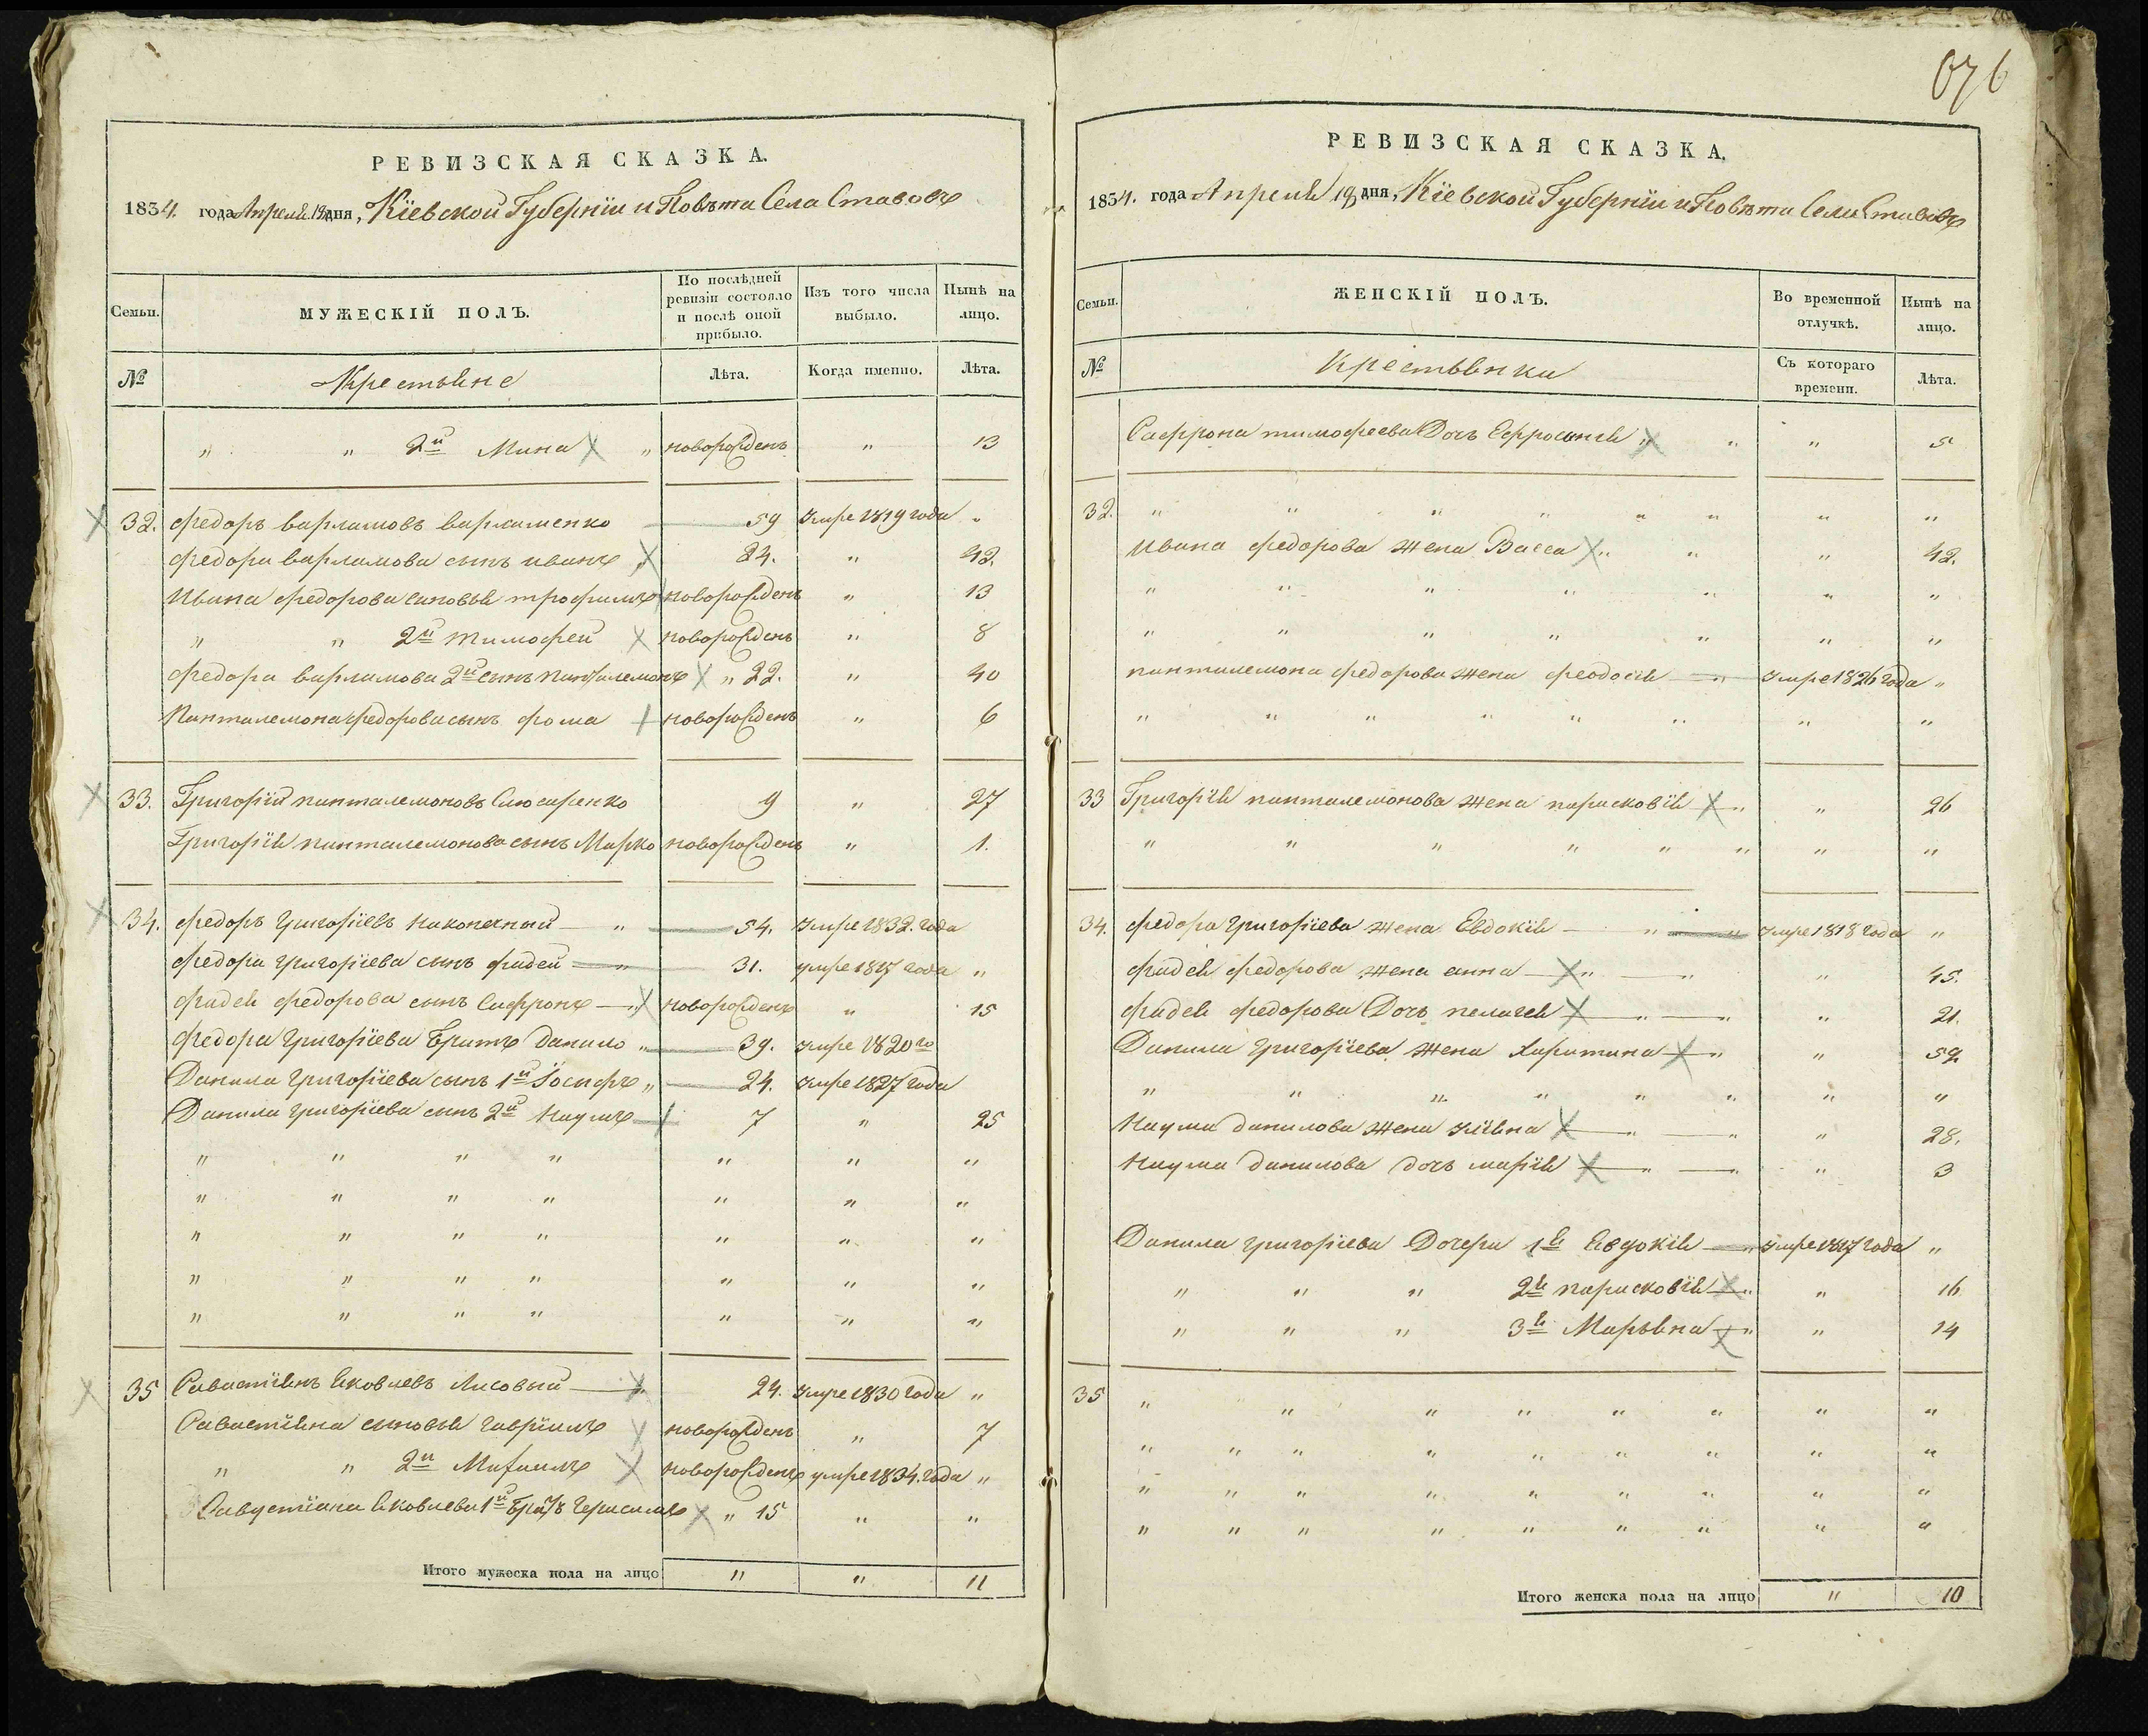 676
РЕВИЗСКАЯ СКАЗКА.
1834. года Апреля 19 дня, Кіевской Губерніи и Повѣта Села Ставовъ
Семьи. МУЖЕСКІЙ ПОЛЪ. По послѣдней ревизіи состояло и послѣ оной прибыло. Изъ того числа выбыло. Нынѣ на лицо.
№ Крестьяне Лѣта. Когда именно. Лѣта.
" " 2й Мина " новорожденъ " 13
32. Федоръ варламовъ варламенко 59 умре 1819 года "
федора варламова сынъ иванъ " 24. " 42.
Ивана федорова сыновья трофимъ новорожденъ " 13
" " 2й тимофей новорожденъ " 8
федора варламова 2й сынъ пантилемонъ " 22. " 40
Панталемона федорова сынъ фома новорожденъ " 6
33. Григорій панталемоновъ Слюсаренко 9 " 27
Григорія панталемонова сынъ Марко новорожденъ " 1.
34. федоръ григоріевъ наконечный " 54. умре 1832. года
федора григоріева сынъ фадей " 31. умре 1817 года "
фадея федорова сынъ Сафронъ " новорожденъ " 15
федора григоріева братъ данило " 39. умре 1820го
Данила григоріева сынъ 1й Іосифъ " 24. умре 1827 года
Данила григоріева сынъ 2й наумъ 7 " 25
" " " " " " "
" " " " " " "
" " " " " " "
" " " " " " "
" " " " " " "
35 Савастіянъ яковлевъ Лисовый " 24. умре 1830 года "
Савастіяна сыновья гавріилъ новорожденъ " 7
" " 2й Михаилъ новорожденъ умре 1834. года "
Савустіана яковлева 1й братъ герасимъ " 15 " "
Итого мужеска пола на лицо " " 11
РЕВИЗСКАЯ СКАЗКА.
1834. года Апреля 19 дня, Кіевской Губерніи и Повѣта Села Ставовъ
Семьи. ЖЕНСКІЙ ПОЛЪ. Во временной отлучкѣ. Нынѣ на лицо.
№ Крестьянки Съ котораго времени. Лѣта.
Сафрона тимофеева Дочь Ефросинія " " " 5
32. " " " " " " " "
ивана федорова жена Васса " " " 42.
" " " " " " "
" " " " " " "
панталемона федорова жена феодосія " умре 1826 года "
" " " " " " " "
33 Григорія панталемонова жена парасковія " " 26
" " " " " " " "
34. федора григоріева жена Евдокія " " умре 1818 года "
фадея федорова жена анна " " " 45.
фадея федорова Дочь пелагея " " " 21.
Данила григоріева жена харитина " " 52
" " " " " " " "
наума данилова жена уліяна " " " 28.
наума данилова дочь марія " " " 3
Данила григоріева Дочери 1я Евдокія " умре 1817 года "
" " " 2я парасковія " " 16
" " " 3я Марьяна " " 14
35 " " " " " " " "
" " " " " " " " "
" " " " " " " " "
" " " " " " " " "
Итого женска пола на лицо " 10